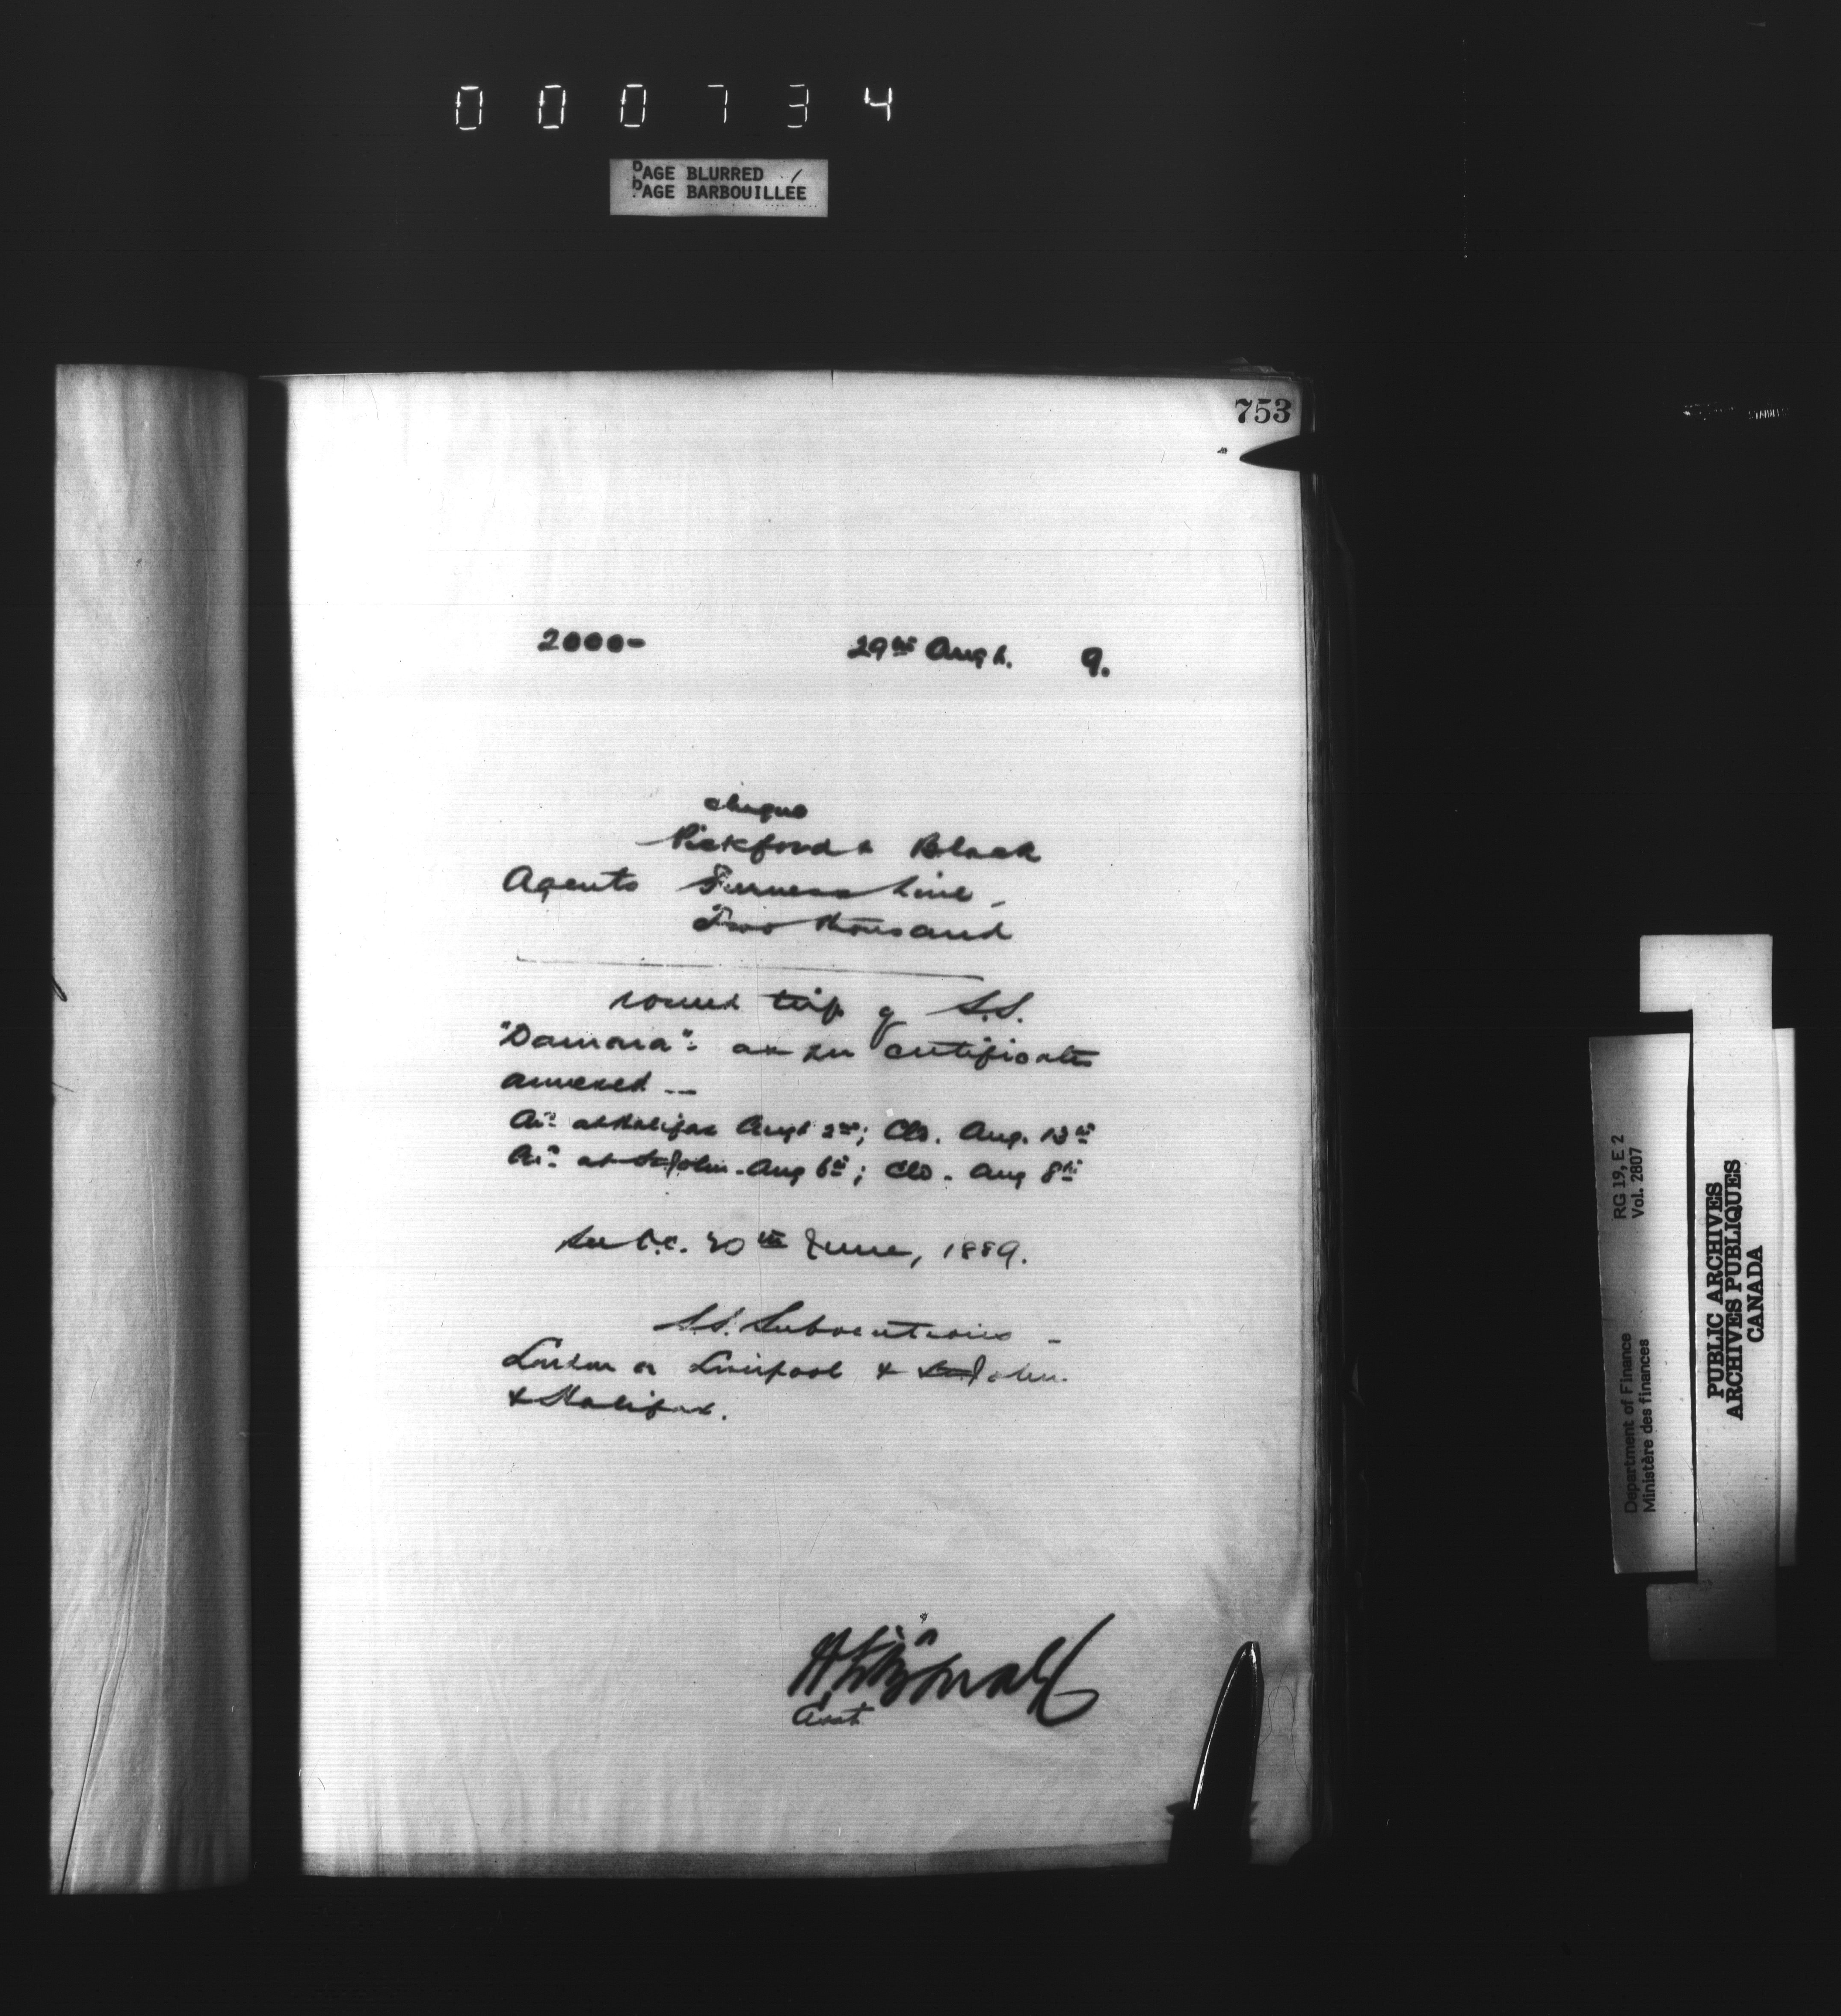 000734
PAGE BLURRED
PAGE BARBOUILLÉE
753
2000- 29th Augt. 9.
cheque
Pickford & Black
Agents Furness Line -
Two thousand
round trip of S.S.
"Damara" - as per certificate
annexed --
Arr. at Halifax Augt 2nd; Cld. Aug. 13th
Arr. at St. John - Aug 6th; Cld - Aug 8th
See O.C. 20th June, 1889.
S.S. Subventions -
London or Liverpool & St. John
& Halifax.
Asst
RG 19, E 2
Vol. 2807
Department of Finance
Ministère des finances
PUBLIC ARCHIVES
ARCHIVES PUBLIQUES
CANADA